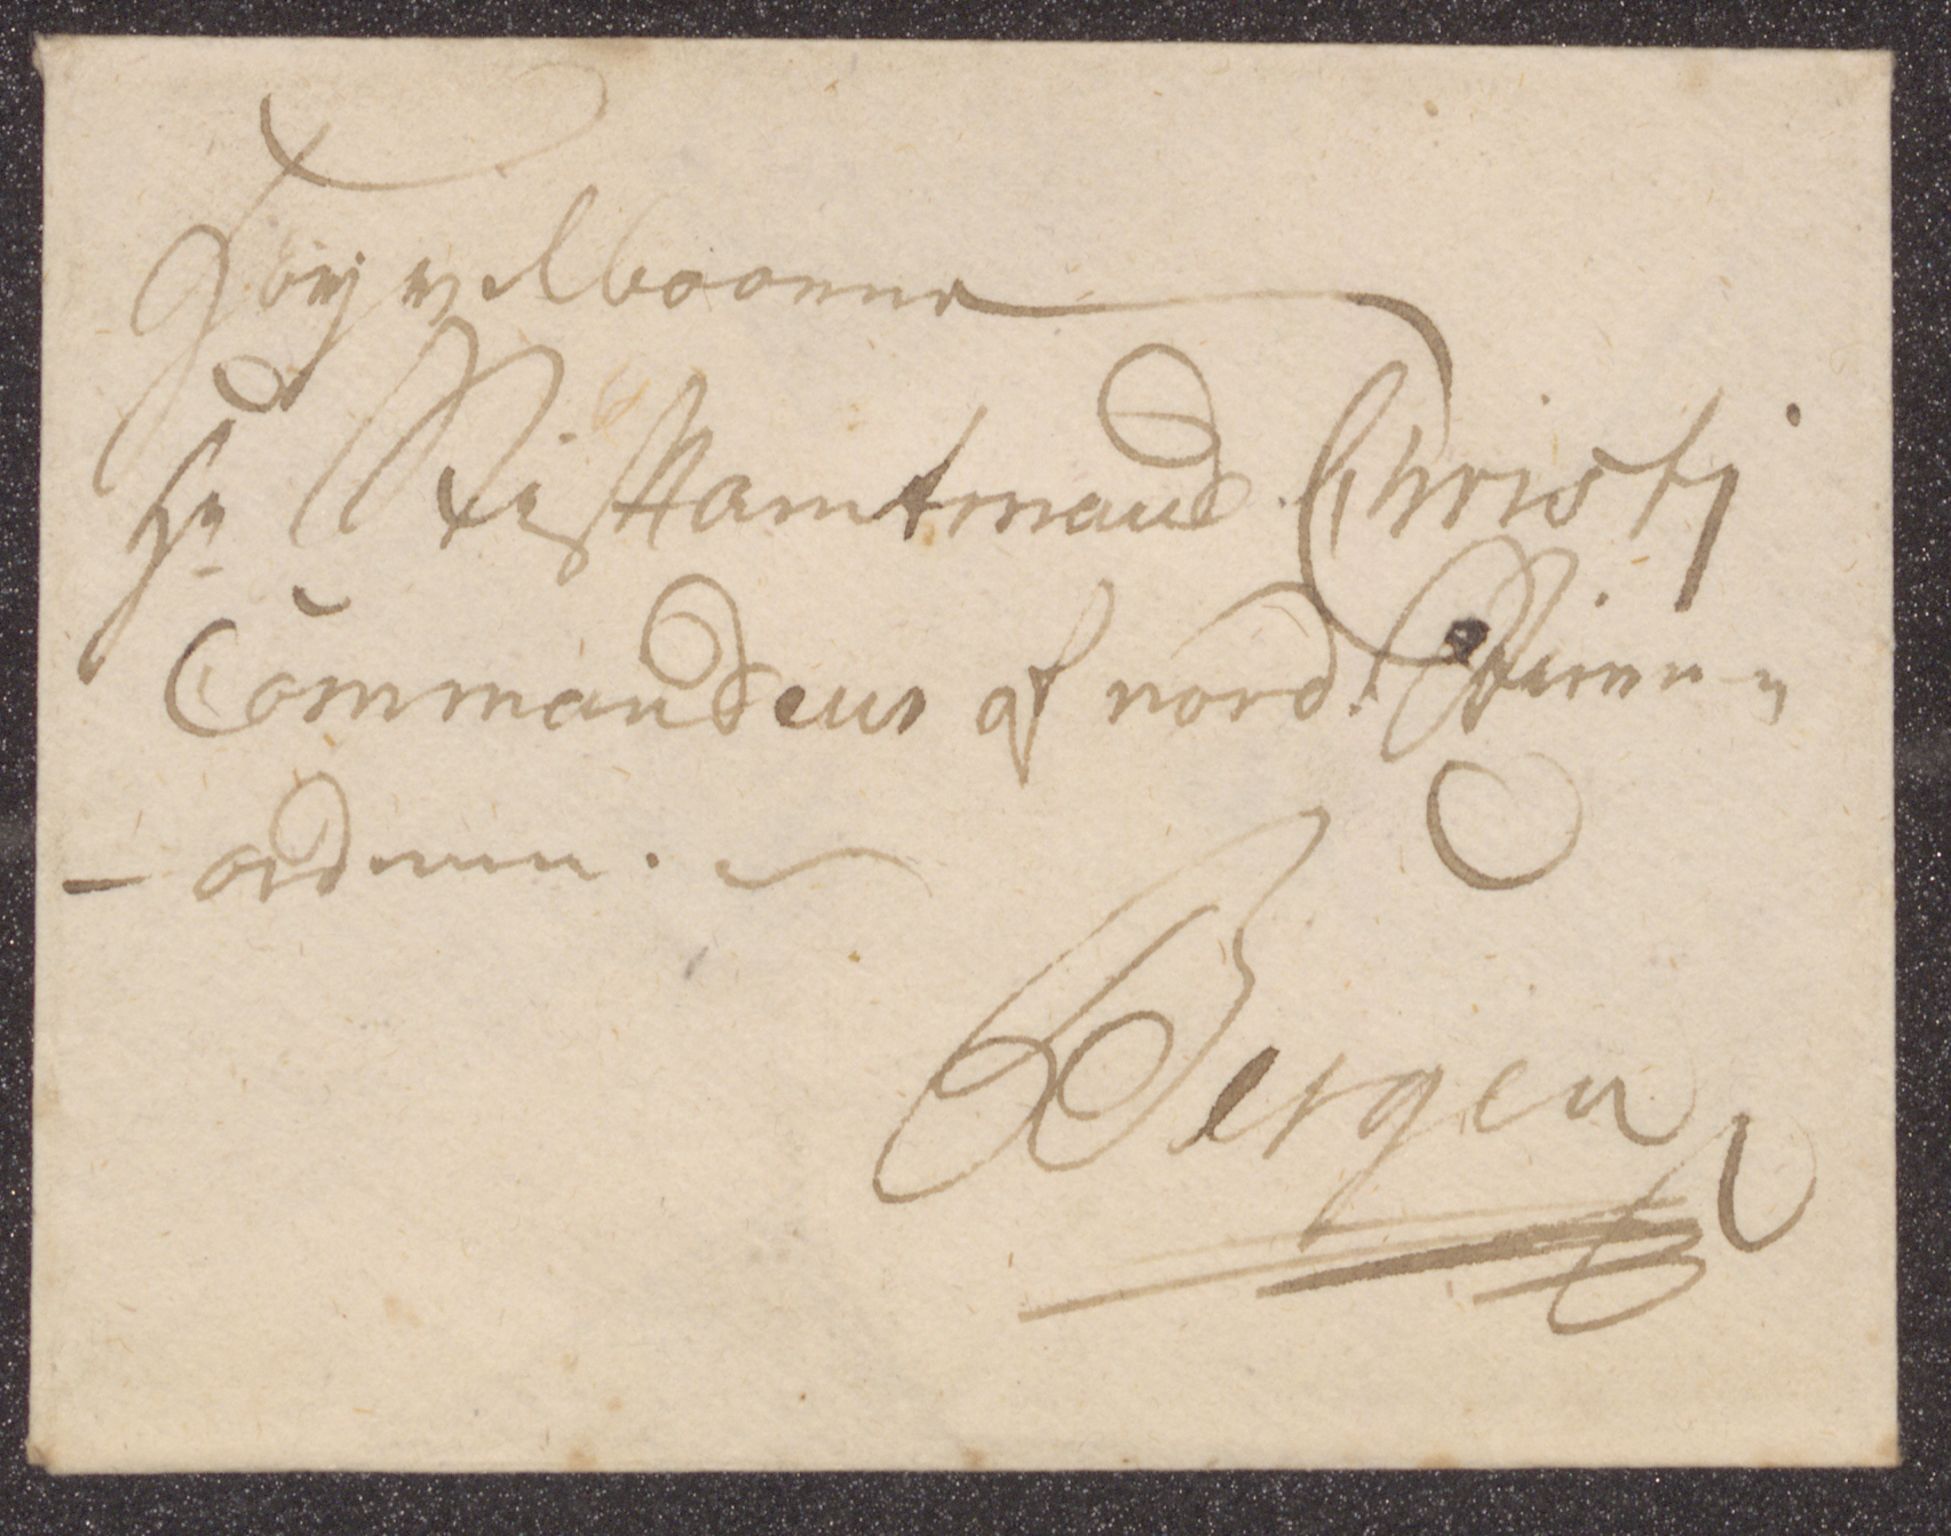 Høy velbaarne
Hr Stiftamtmand Christi
Commandeur af nord Stierne
- ordenen.
Bergen